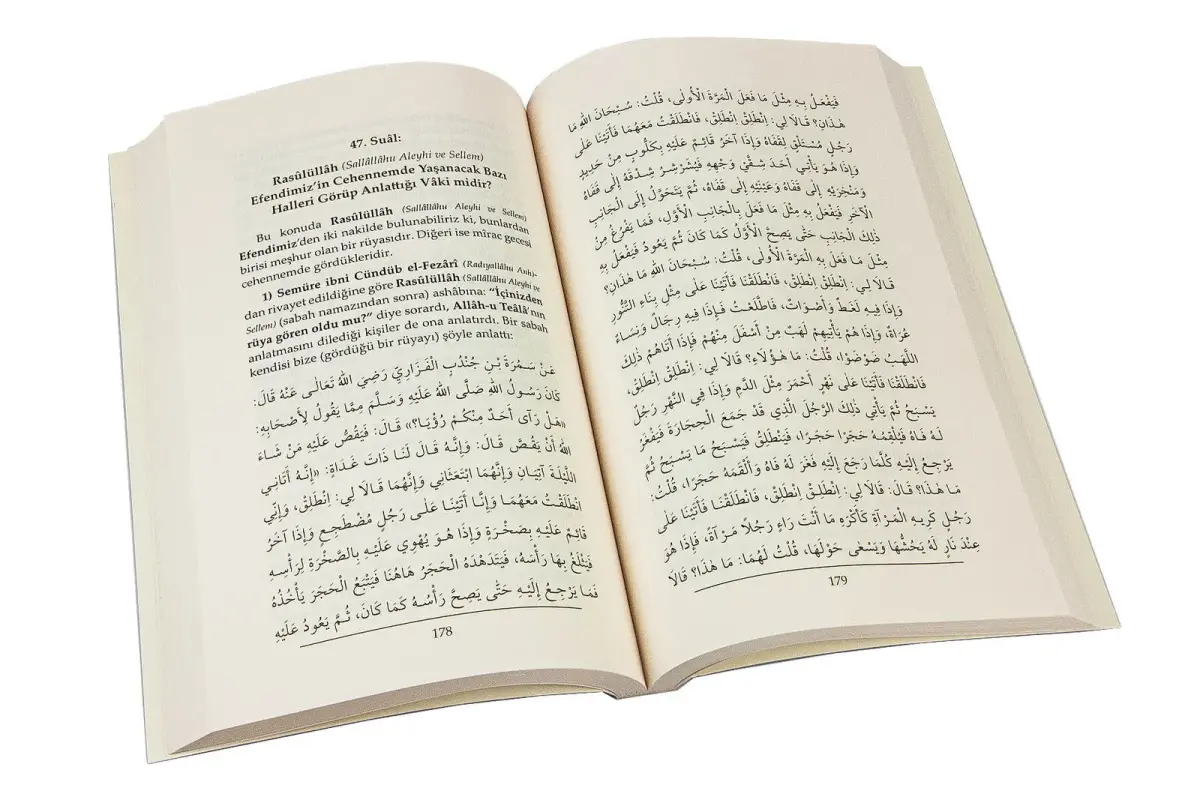 47. Suâl:
Rasûlüllâh (Sallâllâhu Aleyhi ve Sellem)
Efendimiz'in Cehennemde Yaşanacak Bazı
Halleri Görüp Anlattığı Vâki midir?
Bu konuda Rasûlüllâh (Sallâllâhu Aleyhi ve Sellem)
Efendimiz'den iki nakilde bulunabiliriz ki, bunlardan
birisi meşhur olan bir rüyasıdır. Diğeri ise mîrac gecesi
cehennemde gördükleridir.
1) Semüre ibni Cündüb el-Fezârî (Radıyallâhu Anh)-
dan rivayet edildiğine göre Rasûlüllâh (Sallâllâhu Aleyhi ve
Sellem) (sabah namazından sonra) ashâbına: “İçinizden
rüya gören oldu mu?” diye sorardı, Allâh-u Teâlâ'nın
anlatmasını dilediği kişiler de ona anlatırdı. Bir sabah
kendisi bize (gördüğü bir rüyayı) şöyle anlattı:
عَنْ سَمُرَةَ بْنِ جُنْدُبٍ الْفَزَارِيِّ رَضِيَ اللهُ تَعَالَى عَنْهُ قَالَ:
كَانَ رَسُولُ اللهِ صَلَّى اللهُ عَلَيْهِ وَسَلَّمَ مِمَّا يَقُولُ لِأَصْحَابِهِ:
«هَلْ رَآى أَحَدٌ مِنْكُمْ رُؤْيَا؟» قَالَ: فَيَقُصُّ عَلَيْهِ مَنْ شَاءَ
اللهُ أَنْ يَقُصَّ قَالَ: وَإِنَّهُ قَالَ لَنَا ذَاتَ غَدَاةٍ: «إِنَّهُ أَتَانِي
اللَّيْلَةَ آتِيَانِ وَإِنَّهُمَا ابْتَعَثَانِي وَإِنَّهُمَا قَالَا لِي: اِنْطَلِقْ، وَإِنِّي
انْطَلَقْتُ مَعَهُمَا وَإِنَّا أَتَيْنَا عَلَى رَجُلٍ مُضْطَجِعٍ وَإِذَا آخَرُ
قَائِمٌ عَلَيْهِ بِصَخْرَةٍ وَإِذَا هُوَ يَهْوِي عَلَيْهِ بِالصَّخْرَةِ لِرَأْسِهِ
فَيَثْلَغُ بِهَا رَأْسَهُ، فَيَتَدَهْدَهُ الْحَجَرُ هَاهُنَا فَيَتْبَعُ الْحَجَرَ يَأْخُذُهُ
فَمَا يَرْجِعُ إِلَيْهِ حَتَّى يَصِحَّ رَأْسُهُ كَمَا كَانَ، ثُمَّ يَعُودُ عَلَيْهِ
178
فَيَفْعَلُ بِهِ مِثْلَ مَا فَعَلَ الْمَرَّةَ الْأُولَى، قُلْتُ: سُبْحَانَ اللهِ مَا
هٰذَانِ؟ قَالَا لِي: اِنْطَلِقْ اِنْطَلِقْ، فَانْطَلَقْتُ مَعَهُمَا فَأَتَيْنَا عَلَى
رَجُلٍ مُسْتَلْقٍ لِقَفَاهُ وَإِذَا آخَرُ قَائِمٌ عَلَيْهِ بِكَلُّوبٍ مِنْ حَدِيدٍ
وَإِذَا هُوَ يَأْتِي أَحَدَ شِقَّيْ وَجْهِهِ فَيُشَرْشِرُ شِدْقَهُ إِلَى قَفَاهُ
وَمَنْخِرَيْهِ إِلَى قَفَاهُ وَعَيْنَيْهِ إِلَى قَفَاهُ، ثُمَّ يَتَحَوَّلُ إِلَى الْجَانِبِ
الْآخَرِ فَيَفْعَلُ بِهِ مِثْلَ مَا فَعَلَ بِالْجَانِبِ الْأَوَّلِ، فَمَا يَفْرُغُ مِنْ
ذٰلِكَ الْجَانِبِ حَتَّى يَصِحَّ الْأَوَّلُ كَمَا كَانَ ثُمَّ يَعُودُ فَيَفْعَلُ بِهِ
مِثْلَ مَا فَعَلَ بِهِ الْمَرَّةَ الْأُولَى، قُلْتُ: سُبْحَانَ اللهِ مَا هٰذَانِ؟
قَالَا لِي: اِنْطَلِقْ اِنْطَلِقْ، فَانْطَلَقْنَا فَأَتَيْنَا عَلَى مِثْلِ بِنَاءِ التَّنُّورِ
وَإِذَا فِيهِ لَغَطٌ وَأَصْوَاتٌ، فَاطَّلَعْتُ فَإِذَا فِيهِ رِجَالٌ وَنِسَاءٌ
عُرَاةٌ، وَإِذَا هُمْ يَأْتِيهِمْ لَهَبٌ مِنْ أَسْفَلَ مِنْهُمْ فَإِذَا أَتَاهُمْ ذٰلِكَ
اللَّهَبُ ضَوْضَوْا، قُلْتُ: مَا هٰؤُلَاءِ؟ قَالَا لِي: اِنْطَلِقْ اِنْطَلِقْ،
فَانْطَلَقْنَا فَأَتَيْنَا عَلَى نَهْرٍ أَحْمَرَ مِثْلَ الدَّمِ وَإِذَا فِي النَّهْرِ رَجُلٌ
يَسْبَحُ ثُمَّ يَأْتِي ذٰلِكَ الرَّجُلَ الَّذِي قَدْ جَمَعَ الْحِجَارَةَ فَيَفْغَرُ
لَهُ فَاهُ فَيُلْقِمُهُ حَجَرًا حَجَرًا، فَيَنْطَلِقُ فَيَسْبَحُ مَا يَسْبَحُ ثُمَّ
يَرْجِعُ إِلَيْهِ كُلَّمَا رَجَعَ إِلَيْهِ فَغَرَ لَهُ فَاهُ وَأَلْقَمَهُ حَجَرًا، قُلْتُ:
مَا هٰذَا؟ قَالَ: قَالَا لِي: اِنْطَلِقْ اِنْطَلِقْ، فَانْطَلَقْنَا فَأَتَيْنَا عَلَى
رَجُلٍ كَرِيهِ الْمَرْآةِ كَأَكْرَهِ مَا أَنْتَ رَاءٍ رَجُلًا مَرْآةً، فَإِذَا هُوَ
عِنْدَ نَارٍ لَهُ يَحُشُّهَا وَيَسْعَى حَوْلَهَا، قُلْتُ لَهُمَا: مَا هٰذَا؟ قَالَا
179